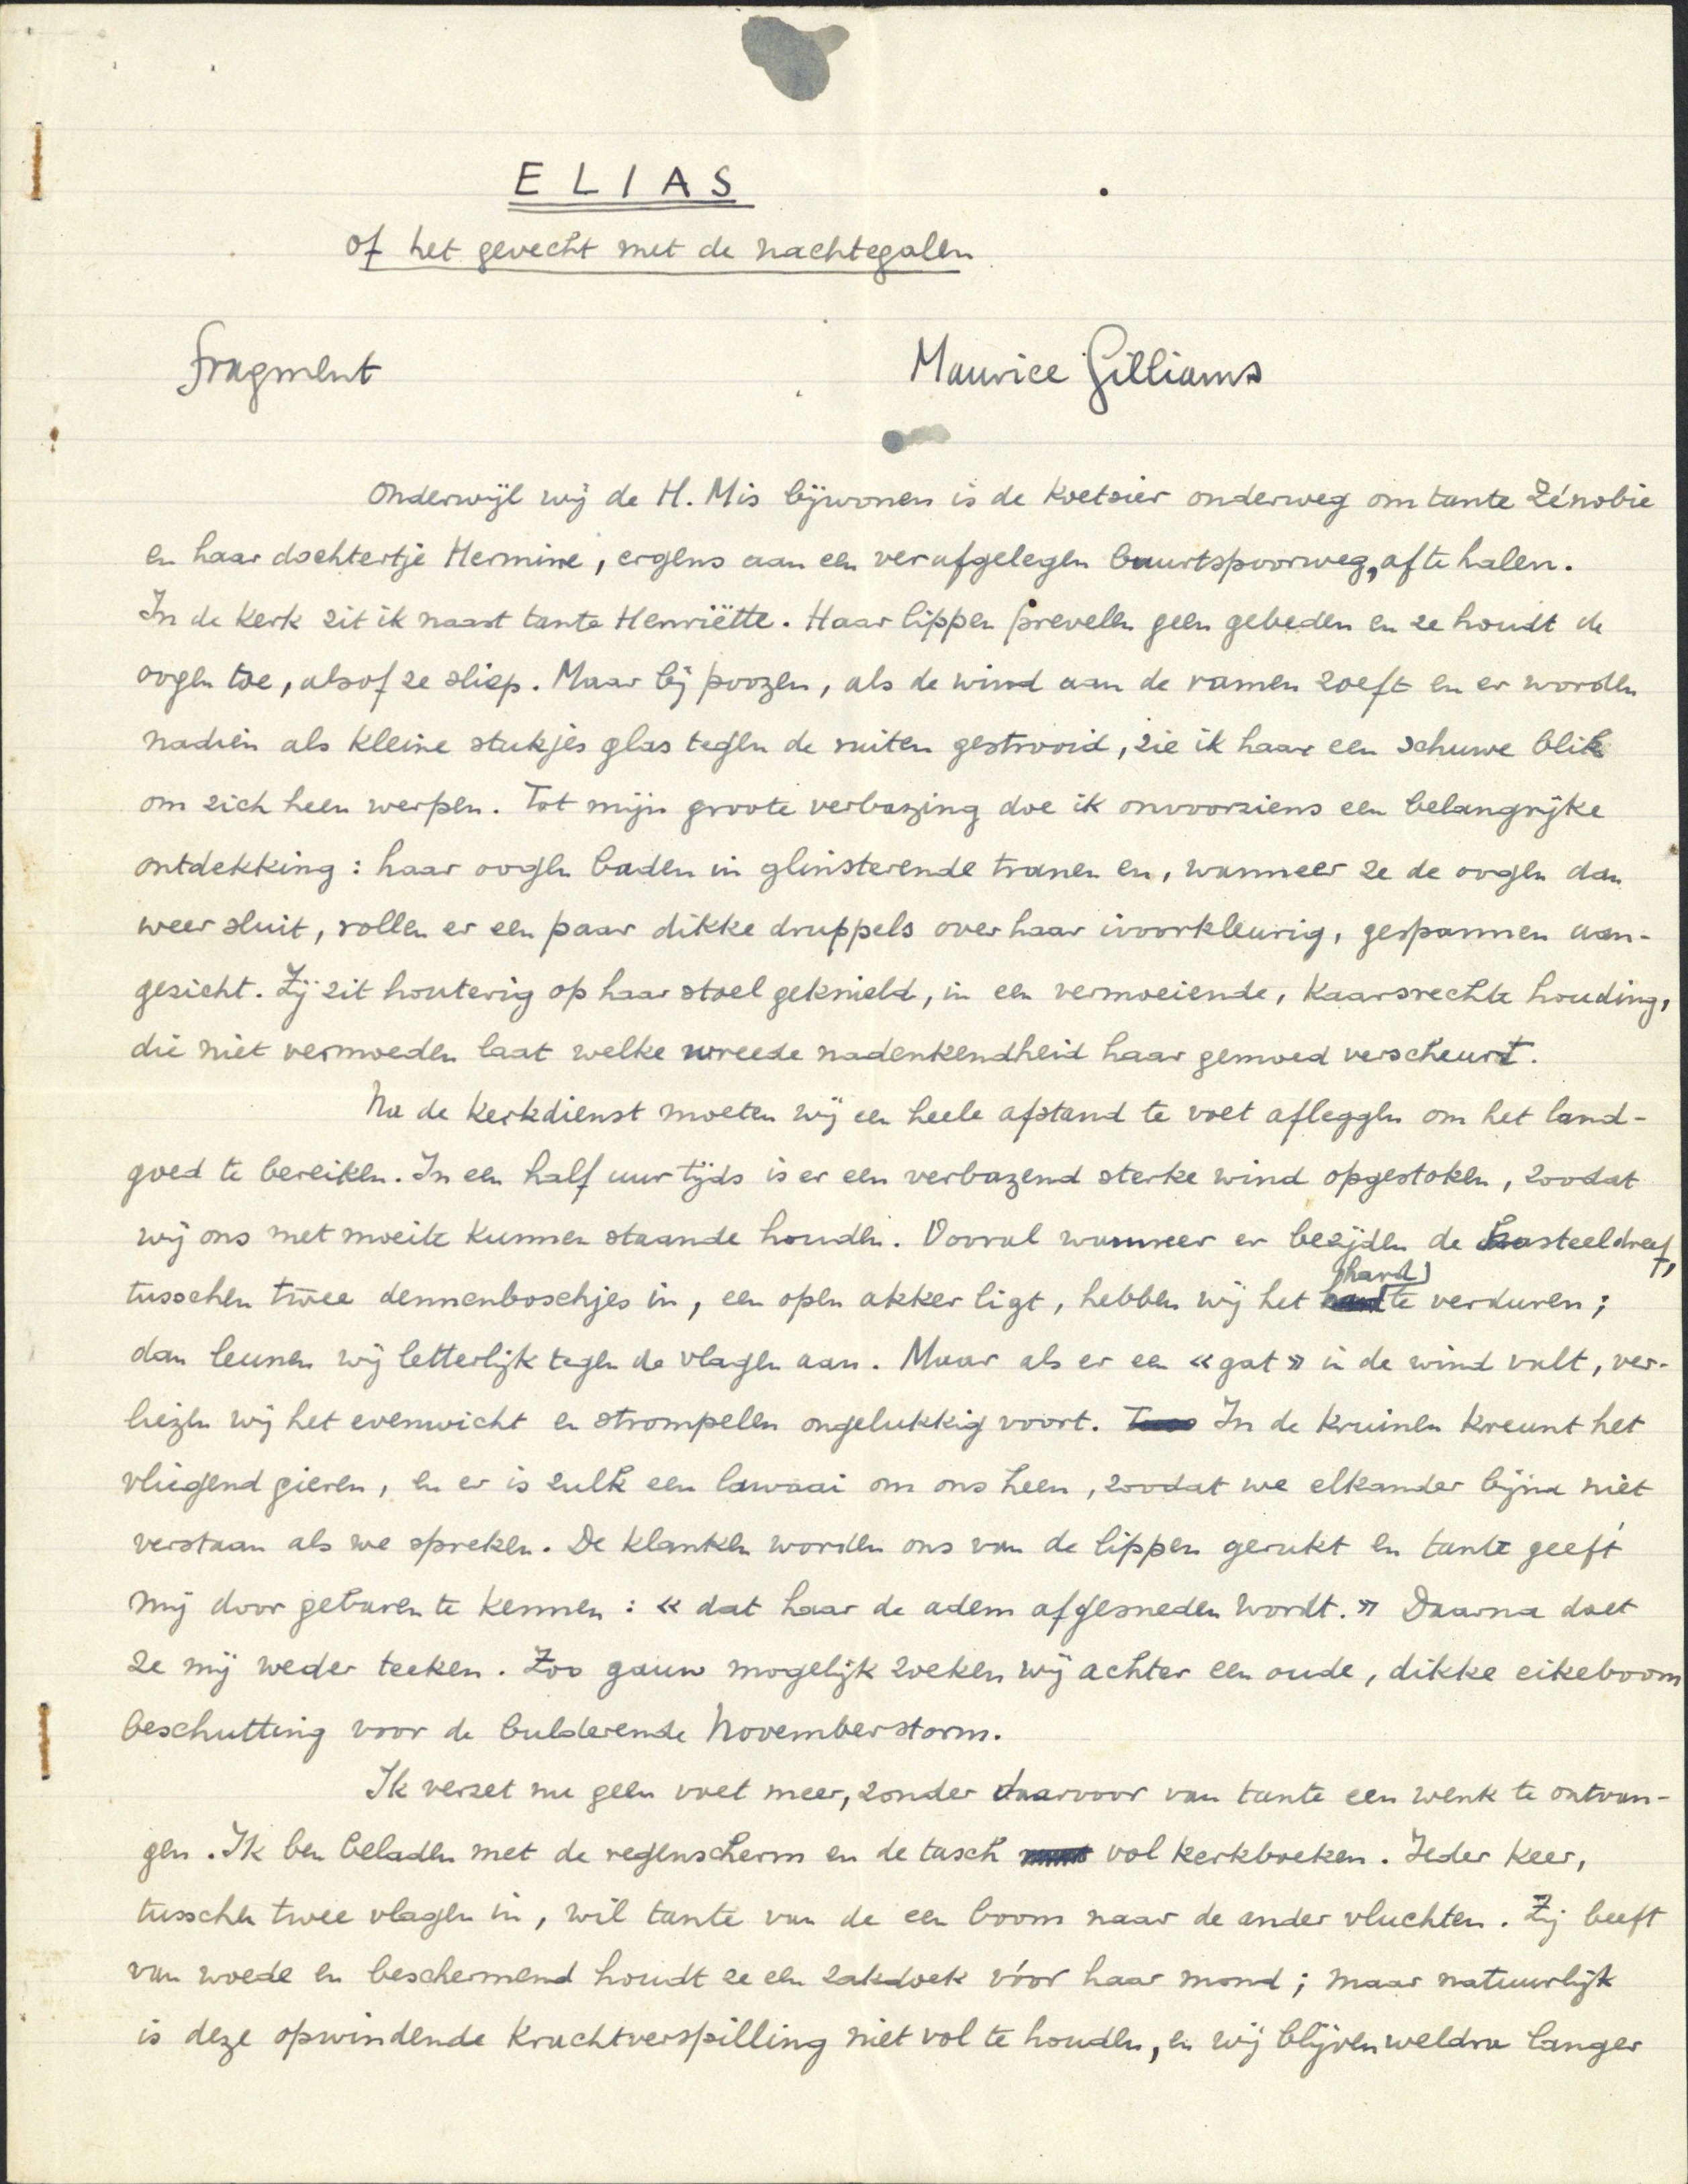 ELIAS
of het gevecht met de nachtegalen
fragment Maurice Gilliams
Onderwijl wij de H. Mis bijwonen is de koetsier onderweg om tante Zénobie
en haar dochtertje Hermine, ergens aan een verafgelegen buurtspoorweg, af te halen.
In de kerk zit ik naast tante Henriëtte. Haar lippen prevelen geen gebeden en ze houdt de
oogen toe, alsof ze sliep. Maar bij poozen, als de wind aan de ramen zoeft en er worden
nadien als kleine stukjes glas tegen de ruiten gestrooid, zie ik haar een schuwe blik
om zich heen werpen. Tot mijn groote verbazing doe ik onvoorziens een belangrijke
ontdekking: haar oogen baden in glinsterende tranen en, wanneer ze de oogen dan
weer sluit, rollen er een paar dikke druppels over haar ivoorkleurig, gespannen aan-
gezicht. Zij zit houterig op haar stoel geknield, in een vermoeiende, kaarsrechte houding,
die niet vermoeden laat welke wreede nadenkendheid haar gemoed verscheurt.
Na de kerkdienst moeten wij een heele afstand te voet afleggen om het land-
goed te bereiken. In een half uur tijds is er een verbazend sterke wind opgestoken, zoodat
wij ons met moeite kunnen staande houden. Vooral wanneer er bezijden de kasteeldreef,
tusschen twee dennenboschjes in, een open akker ligt, hebben wij het hard te verduren;
dan leunen wij letterlijk tegen de vlagen aan. Maar als er een «gat» in de wind valt, ver-
liezen wij het evenwicht en strompelen ongelukkig voort. In de kruinen kreunt het
vliegend gieren, en er is zulk een lawaai om ons heen, zoodat we elkander bijna niet
verstaan als we spreken. De klanken worden ons van de lippen gerukt en tante geeft
mij door gebaren te kennen: «dat haar de adem afgesneden wordt.» Daarna doet
ze mij weder teeken. Zoo gauw mogelijk zoeken wij achter een oude, dikke eikeboom
beschutting voor de bulderende Novemberstorm.
Ik verzet nu geen voet meer, zonder daarvoor van tante een wenk te ontvan-
gen. Ik ben beladen met de regenscherm en de tasch vol kerkboeken. Ieder keer,
tusschen twee vlagen in, wil tante van de een boom naar de ander vluchten. Zij beeft
van woede en beschermend houdt ze een zakdoek vóor haar mond; maar natuurlijk
is deze opwindende krachtverspilling niet vol te houden, en wij blijven weldra langer